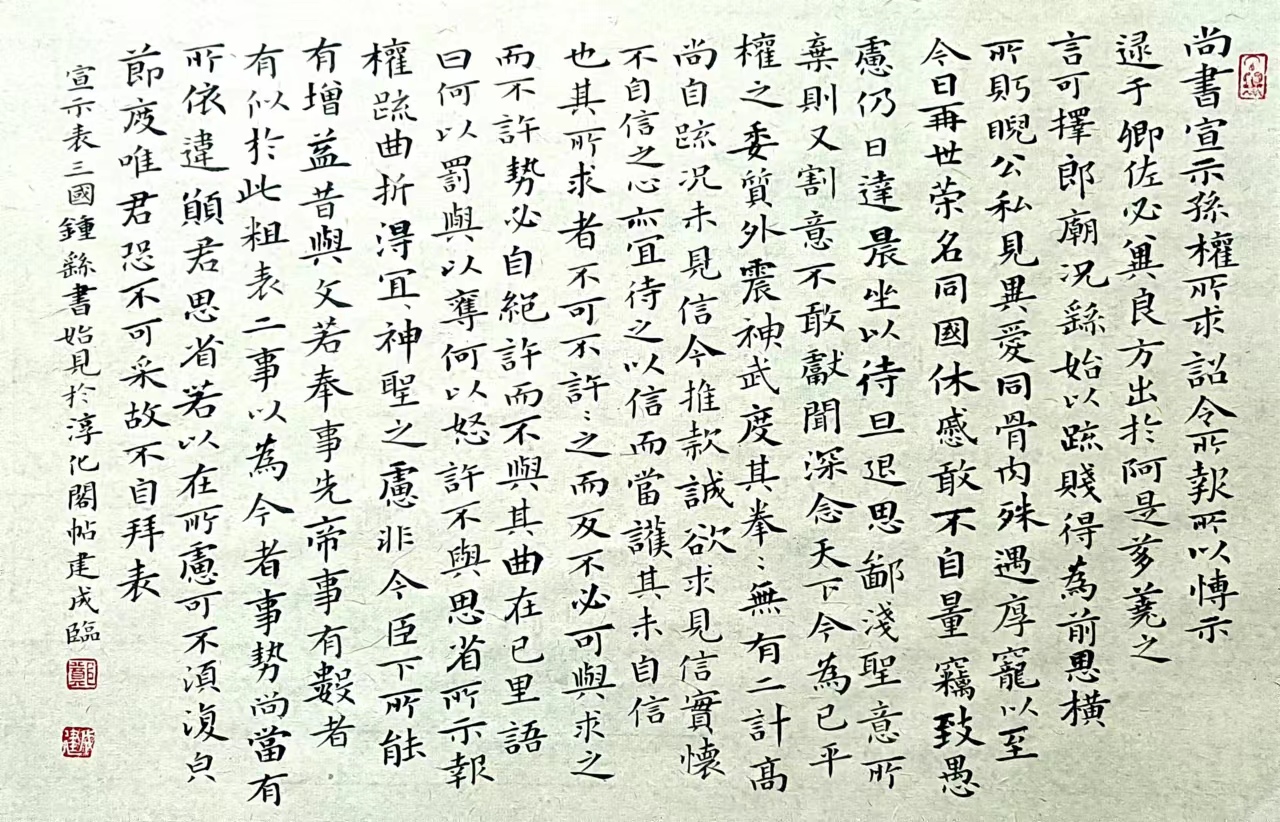 尚書宣示孫權所求詔令所報所以博示
逮于卿佐必冀良方出於阿是芻蕘之
言可擇郎廟況繇始以疏賤得為前思橫
所眄睨公私見異愛同骨肉殊遇厚寵以至
今日再世荣名同國休慼敢不自量竊致愚
慮仍日達晨坐以待旦退思鄙淺聖意所
棄則又割意不敢獻聞深念天下今為已平
權之委質外震神武度其拳〻無有二計高
尚自疏況未見信今推款誠欲求見信實懷
不自信之心亦宜待之以信而當護其未自信
也其所求者不可不許〻之而反不必可與求之
而不許勢必自絕許而不與其曲在已里語
曰何以罰與以奪何以怒許不與思省所示報
權疏曲折得宜〻神聖之慮非今臣下所能
有增益昔與文若奉事先帝事有數者
有似於此粗表二事以為今者事勢尚當有
所依違願君思省若以在所慮可不須復皃
節度唯君恐不可采故不自拜表
宣示表三國鍾繇書始見於淳化閣帖建成臨